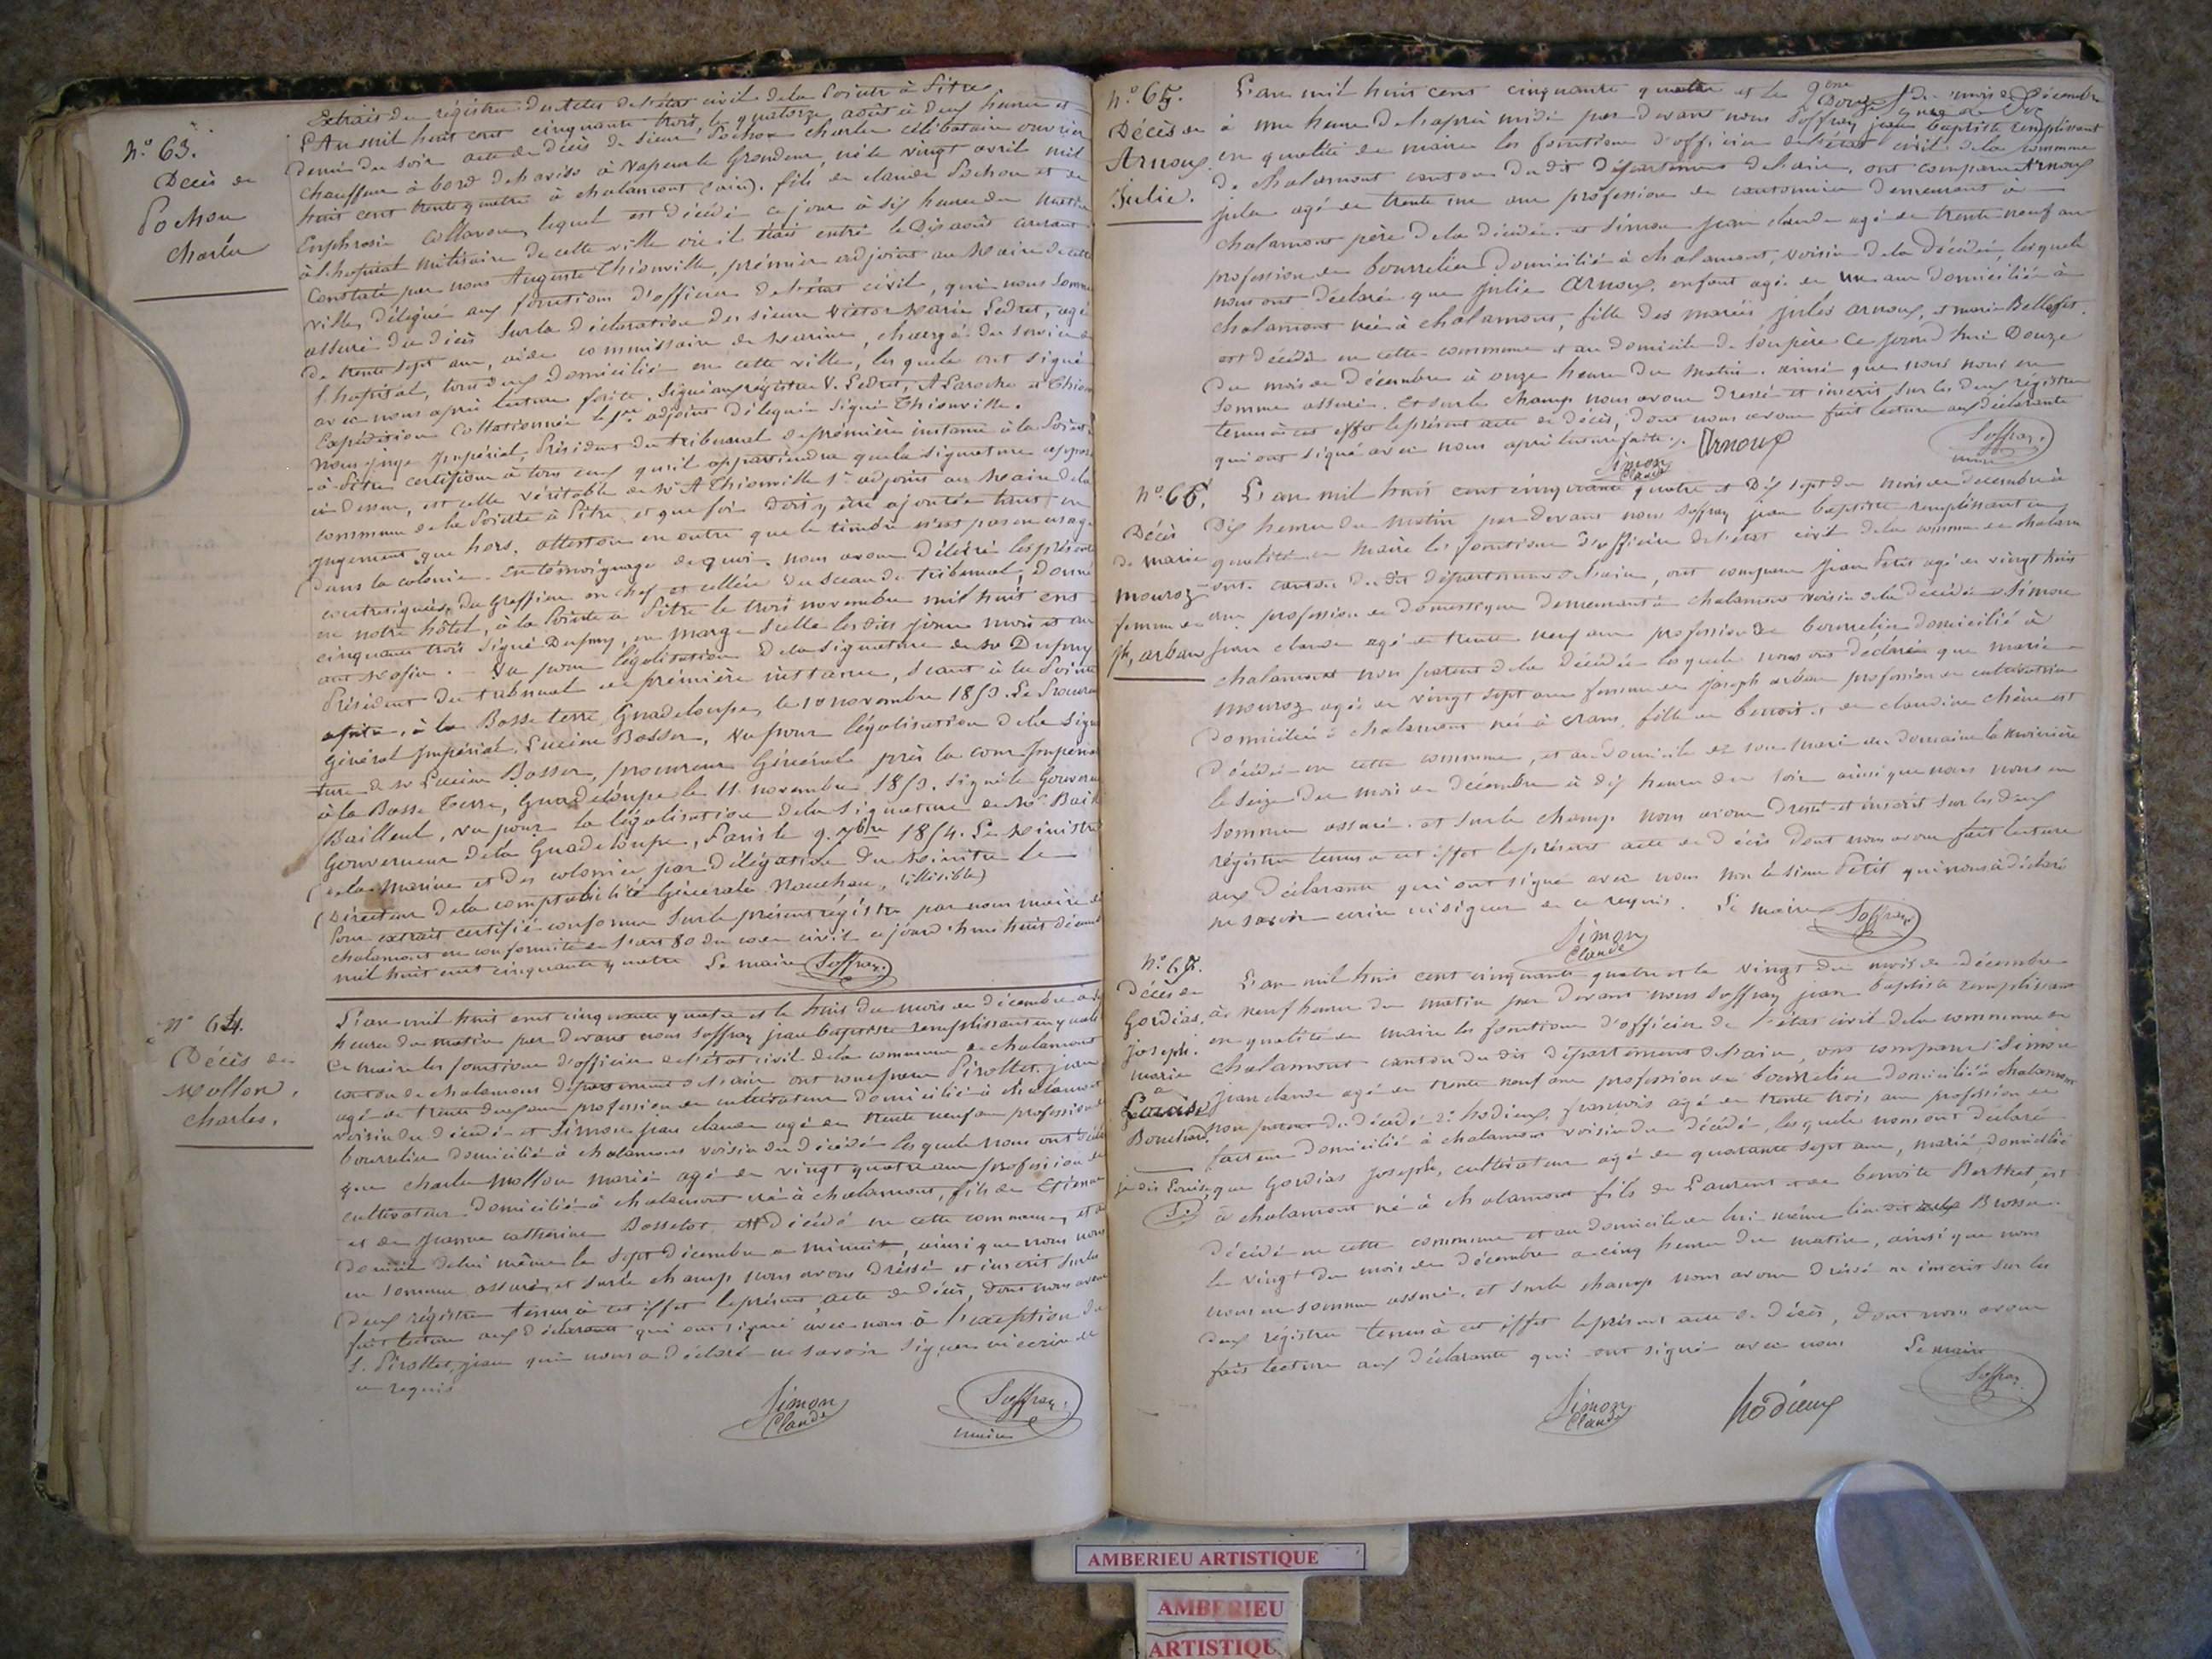 N.° 63.
Décès de
Pochon
Charles
Extrait du régistre des Actes de l'état civil de la Pointe à Pitre
L'An mil huit cent cinquante trois, le quatorze août à deux heures et
demie du soir acte de décès de sieur Pochon Charles célibataire ouvrier
chauffeur à bord de l'aviso à vapeur le Grondeur, né le vingt avril mil
huit cent trente quatre à chalamont (ain). fils de claude Pochon et de
Euphrosie Collavon, lequel est décédé ce jour à dix heures du matin
à l'hopital militaire de cette ville où il était entré le Dix août courant
Constaté par nous Auguste Thionville, prémier adjoint au Maire de cette
ville, délégué aux fonctions d'officier de l'état civil, qui nous sommes
assuré du décès sur la déclaration des sieurs Victor Marie Ledret, agé
de trente sept ans, aide commissaire de Marine, chargé du service de
l'hopital, tous deux domiciliés en cette ville, lesquels ont signé
avec nous après lecture faite. Signé au régistre V. Ledret, A Laroche et Thion
Expédition Collationnée le 1er adjoint délégué signé Thionville.
Nous juge Impérial, Président du tribunal de prémière instance à la Pointe
-à-Pitre certifions à tous ceux qu'il appartiendra que la signature apposée
ci dessus, est celle véritable de Mr A Thionville 1er adjoint au Maire de la
commune de la Pointe à Pitre, et que foi doit y être ajoutée tant en
jugement que hors. attestons en outre que le timbre n'est pas en usage
dans la colonie. En témoignage de quoi, nous avons délivré les présentes
contresignées du Greffier en chef et scellées du sceau du tribunal; Donné
en notre hôtel, à la Pointe à Pitre le trois novembre mil huit cent
cinquante trois signé Dupuy, en marge scellé les dits jour mois et an
Vu pour légalisation de la signature de Mr Dupuy
Président du tribunal de prémière instance, séant à la Pointe
à Pitre, à la Basse terre Guadeloupe, le 10 novembre 1853. Le Procureur
Général Impérial. Lucien Basser, Vu pour légalisation de la signa
ture de Mr Lucien Basser, procureur Général près la cour Impériale
à la Basse Terre, Guadeloupe le 11 novembre 1853. signé le Gouverneur
Bailleul, Vu pour la légalisation de la signature de Mr Bail
Gouverneur de la Guadeloupe, Paris le 9. 7bre 1854. Le Ministre
de la Marine et des colonies par délégation du Ministre le
Directeur de la comptabilité Générale (illisible)
Pour extrait certifié conforme sur le présent régistre par nous maire de
chalamont en conformité de l'art 80 du code civil ce jourd'hui huit décembre
mil huit cent cinquante quatre Le maire Soffray
N° 64.
Décès de
Mollon,
Charles.
L'an mil huit cent cinquante quatre et le huit du mois de décembre à
heures du matin par devant nous Soffray jean baptiste remplissant en qualité
de maire les fonctions d'officier de l'état civil de la commune de chalamont
canton de chalamont département de l'ain ont comparu Pirollet jean
agé de trente deux ans profession de cultivateur domicilié à chalamont
voisin du décédé et Simon jean claude agé de trente neuf ans profession de
bourrelier domicilié à chalamont voisin du décédé lesquels nous ont déclaré
que charles Mollon marié agé de vingt quatre ans profession de
cultivateur domicilié à chalamont né à chalamont, fils de Etienne
et de jeanne catherine Bosselot est décédé en cette commune, et au
domicile de lui même le sept décembre à minuit, ainsi que nous nous
en sommes assuré, et sur le champ nous avons dréssé et inscrit sur les
deux régistres tenus à cet effet le présent acte de décès, dont nous avons
fait lecture aux déclarants qui ont signé avec nous à l'exception du
S. Pirollet, jean qui nous a déclaré ne savoir signer ni écrire de
ce requis
Simon
Claude
Soffray
maire
N.° 65.
Décès de
Arnoux
Julie.
L'an mil huit cent cinquante quatre et le Douze du mois de Décembre
à une heure de l'après midi par devant nous Soffray jean baptiste remplissant
en qualité de maire les fonctions d'officier de l'état civil de la commune
de chalamont canton du dit Département de l'ain, ont comparu Arnoux
jules agé de trente un ans profession de cantonnier demeurant à
chalamont père de la décédée. et Simon jean claude agé de trente neuf ans
profession de bourrelier domicilié à chalamont, voisin de la décédée, lesquels
nous ont déclaré que Julie Arnoux, enfant agé de un an domiciliée à
chalamont née à chalamont, fille des mariés jules arnoux, et marie Belloset
est décédée en cette commune et au domicile de son père ce jourd'hui Douze
du mois de décembre à onze heures du matin. ainsi que nous nous en
sommes assurés. Et sur le champ nous avons dressé et inscrit sur les deux régistres
tenus à cet effet le présent acte de décès, dont nous avons fait lecture aux déclarants
qui ont signé avec nous après lecture faite. Arnoux
Simon
Claude
Soffray
maire
N.° 66.
Décès
de marie
mouroz
femme de
jh, arban
L'an mil huit cent cinquante quatre et Dix sept du mois de décembre à
Dix heures du matin par devant nous Soffray jean baptiste remplissant en
qualité de Maire les fonctions d'officier de l'état civil de la commune de chalam
ont. canton du dit département de l'ain, ont comparu jean Petit agé de vingt huit
ans profession de domestique demeurant à chalamont voisin de la décédée et Simon
jean claude agé de trente neuf ans profession de bourrelier domicilié à
chalamont non parent de la décédée lesquels nous ont déclaré que marie
mouroz agée de vingt sept ans femme de joseph arban profession de cultivatrice
domiciliée à chalamont née à crans, fille de benoit et de claudine chêne est
décédée en cette commune, et au domicile de son mari au domaine la
le seize du mois de décembre à dix heures du soir ainsi que nous nous en
sommes assuré. et sur le champ nous avons dressé et inscrit sur les deux
régistres tenus à cet effet le présent acte de décès dont nous avons fait lecture
aux déclarants qui ont signé avec nous non le sieur Petit qui nous à déclaré
ne savoir écrire ni signer de ce requis. Le maire Soffray
Simon
Claude
N.° 67.
Décès de
Gordias,
joseph.
marié
à
Louise
Bouchard.
je dis Louise
S.
L'an mil huit cent cinquante quatre et le vingt du mois de décembre
à neuf heures du matin par devant nous Soffray jean baptiste remplissant
en qualité de maire les fonctions d'officier de l'état civil de la commune de
chalamont canton du dit département de l'ain, ont comparu 1° Simon
jean claude agé de trente neuf ans profession de bourrelier domicilié à chalamont
non parent du décédé 2° hodieux, françois agé de trente trois ans profession de
facteur domicilié à chalamont voisin du décédé, lesquels nous ont déclaré
que Gordias Joseph, cultivateur agé de quarante sept ans, marié domicilié
à chalamont né à chalamont fils de Laurent et de benoite Berthet, est
décédé en cette commune et au domicile de lui même lieu dit Brosse.
le vingt du mois de décembre à cinq heures du matin, ainsi que nous
nous en sommes assuré. et sur le champ nous avons dréssé et inscrit sur les
deux régistres tenus à cet effet le présent acte de décès, dont nous avons
fait lecture aux déclarants qui ont signé avec nous Le maire
Simon
Claude
hodieux
Soffray
AMBERIEU ARTISTIQUE
AMBERIEU
ARTISTIQU